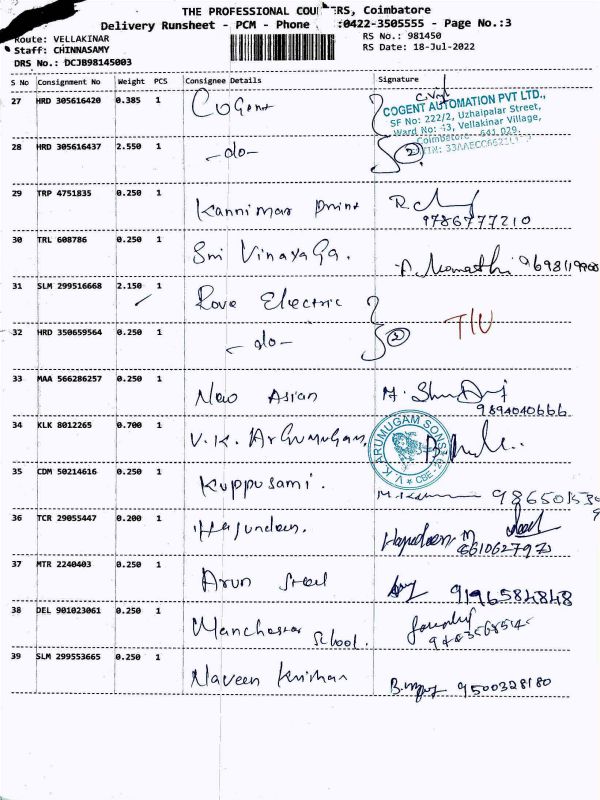 THE PROFESSIONAL COURIERS, Coimbatore
Delivery Runsheet - PCM - Phone :0422-3505555 - Page No.:3
Route: VELLAKINAR RS No.: 981450
Staff: CHINNASAMY RS Date: 18-Jul-2022
DRS No.: DCJB98145003
S No Consignment No Weight PCS Consignee Details Signature
27 HRD 305616420 0.385 1 Cogent
COGENT AUTOMATION PVT LTD.,
SF No: 222/2, Uzhaipalar Street,
Ward No: 43, Vellakinar Village,
Coimbatore - 641 029.
28 HRD 305616437 2.550 1 -do- 2
29 TRP 4751835 0.250 1 Kannimar Print
9786777210
30 TRL 608786 0.250 1 Sri Vinayaga.
31 SLM 299516668 2.150 1 Rove Electric
T/U
32 HRD 350659564 0.250 1 -do- 2
33 MAA 566286257 0.250 1 New Asian
9894040666
34 KLK 8012265 0.700 1 V.K. Arumugam
V.K. ARUMUGAM SONS
35 CDM 50214616 0.250 1 Kuppusami.
36 TCR 29055447 0.200 1
37 MTR 2240403 0.250 1 Arun Steel 9196584848
38 DEL 901023061 0.250 1 Manchester School.
39 SLM 299553665 0.250 1 Naveen Krishan 9500328180